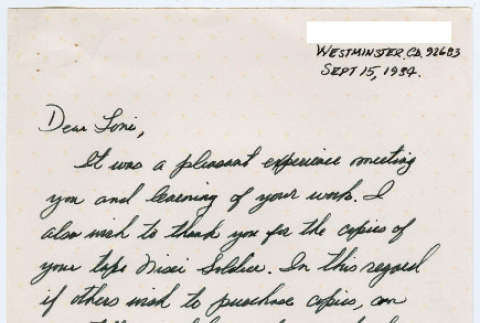 WESTMINSTER, CA. 92683
SEPT 15, 1984.
Dear Loni,
It was a pleasant experience meeting
you and learning of your work. I
also wish to thank you for the copies of
your tape Nisei Soldier. In this regard
if others wish to purchase copies, can